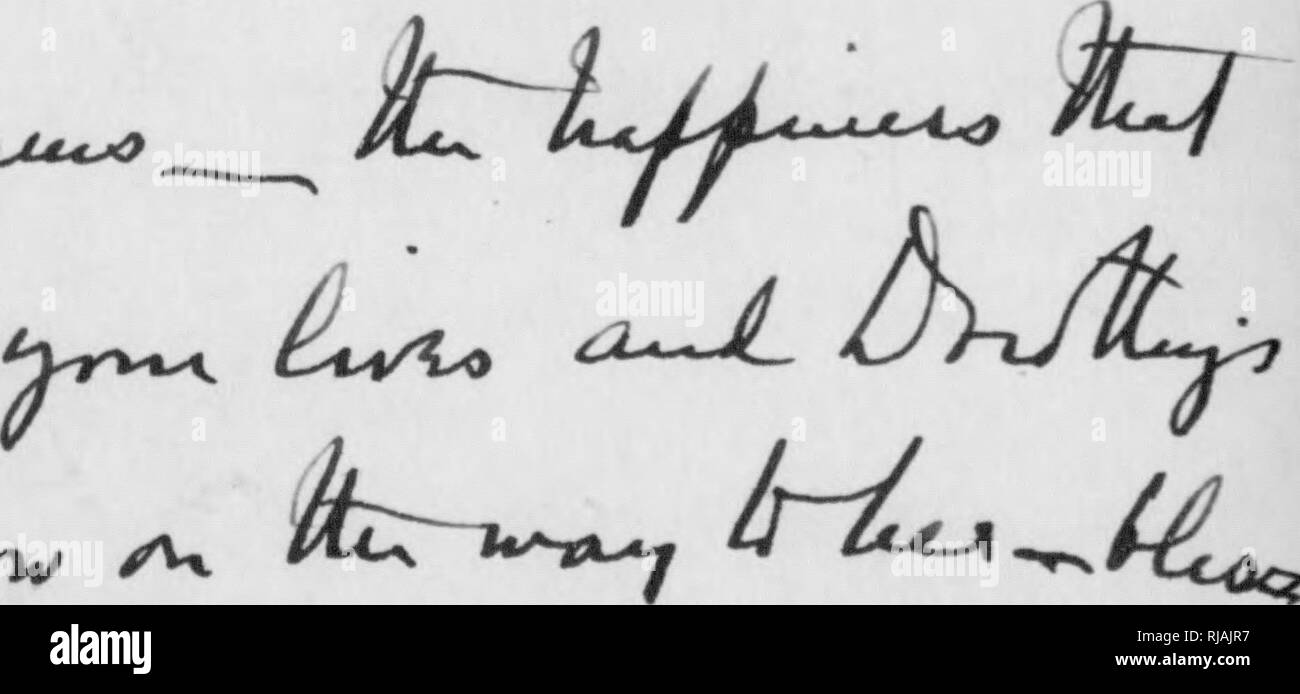 — the happiness that
your lives and Dorothy's
on the way to her — bless
alamy
Image ID: RJAJR7
www.alamy.com